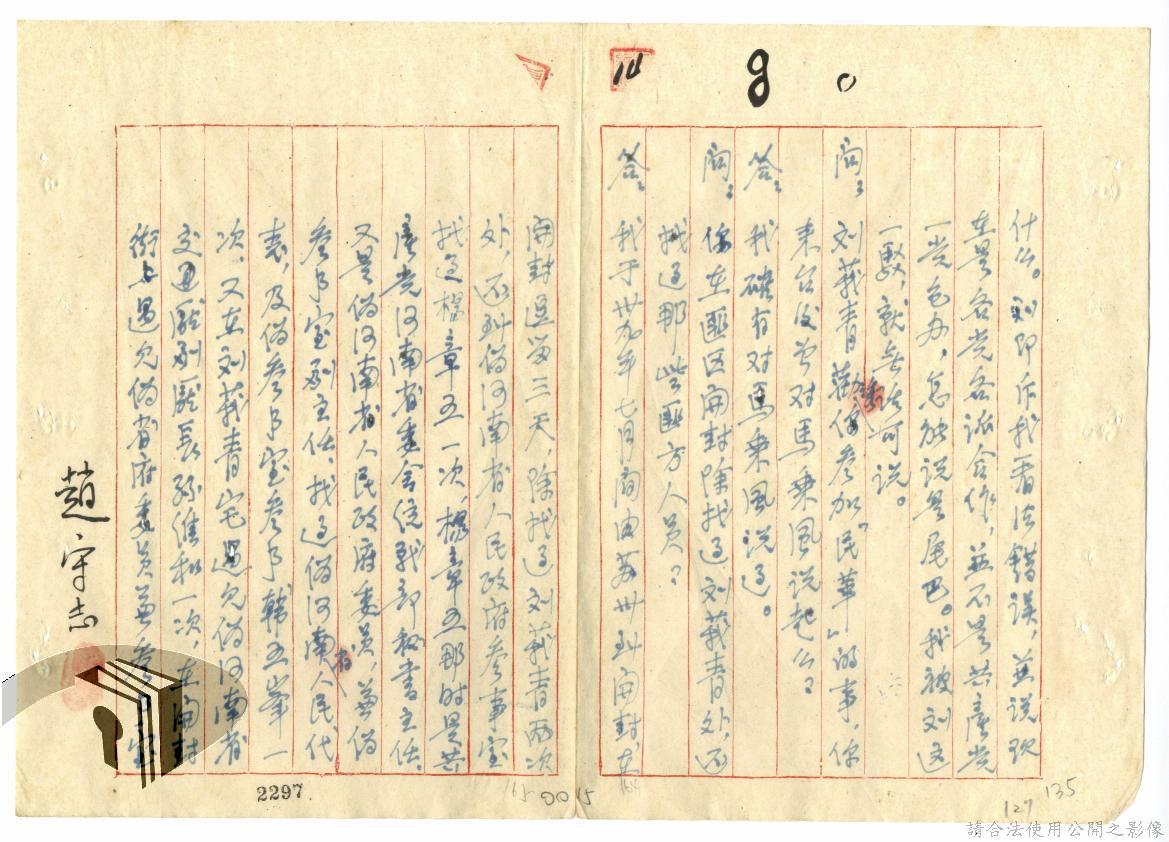 14
8
0
什么。刘即斥我看法错误，并说现
在是各党各派合作，並不是共產党
一党包办，怎能说是尾巴。我被刘这
一駁，就無話可说。
问：刘莪青勸你参加“民革”的事，你
来台后曾对馬乘風说起么？
答：我確有对馬乘風说过。
问：你在匪区開封除找过刘莪青外，还
找过那些匪方人員？
答：我于卅九年七月間由苏州到開封，在
開封逗留三天，除找过刘莪青两次
外，还到偽河南省人民政府参事室
找过楊章五一次，楊章五那时是共
產党河南省委会统战部秘書主任，
又是偽河南省人民政府委员，兼偽
参事室副主任，找过偽河南省人民代
表，及偽参事室参事韓五峯一
次，又在刘莪青宅遇见偽河南省
交通廳副廳長孙維和一次，在開封
街上遇见偽省府委员兼参事室
趙守志
2297
00 15
127
135
請合法使用公開之影像